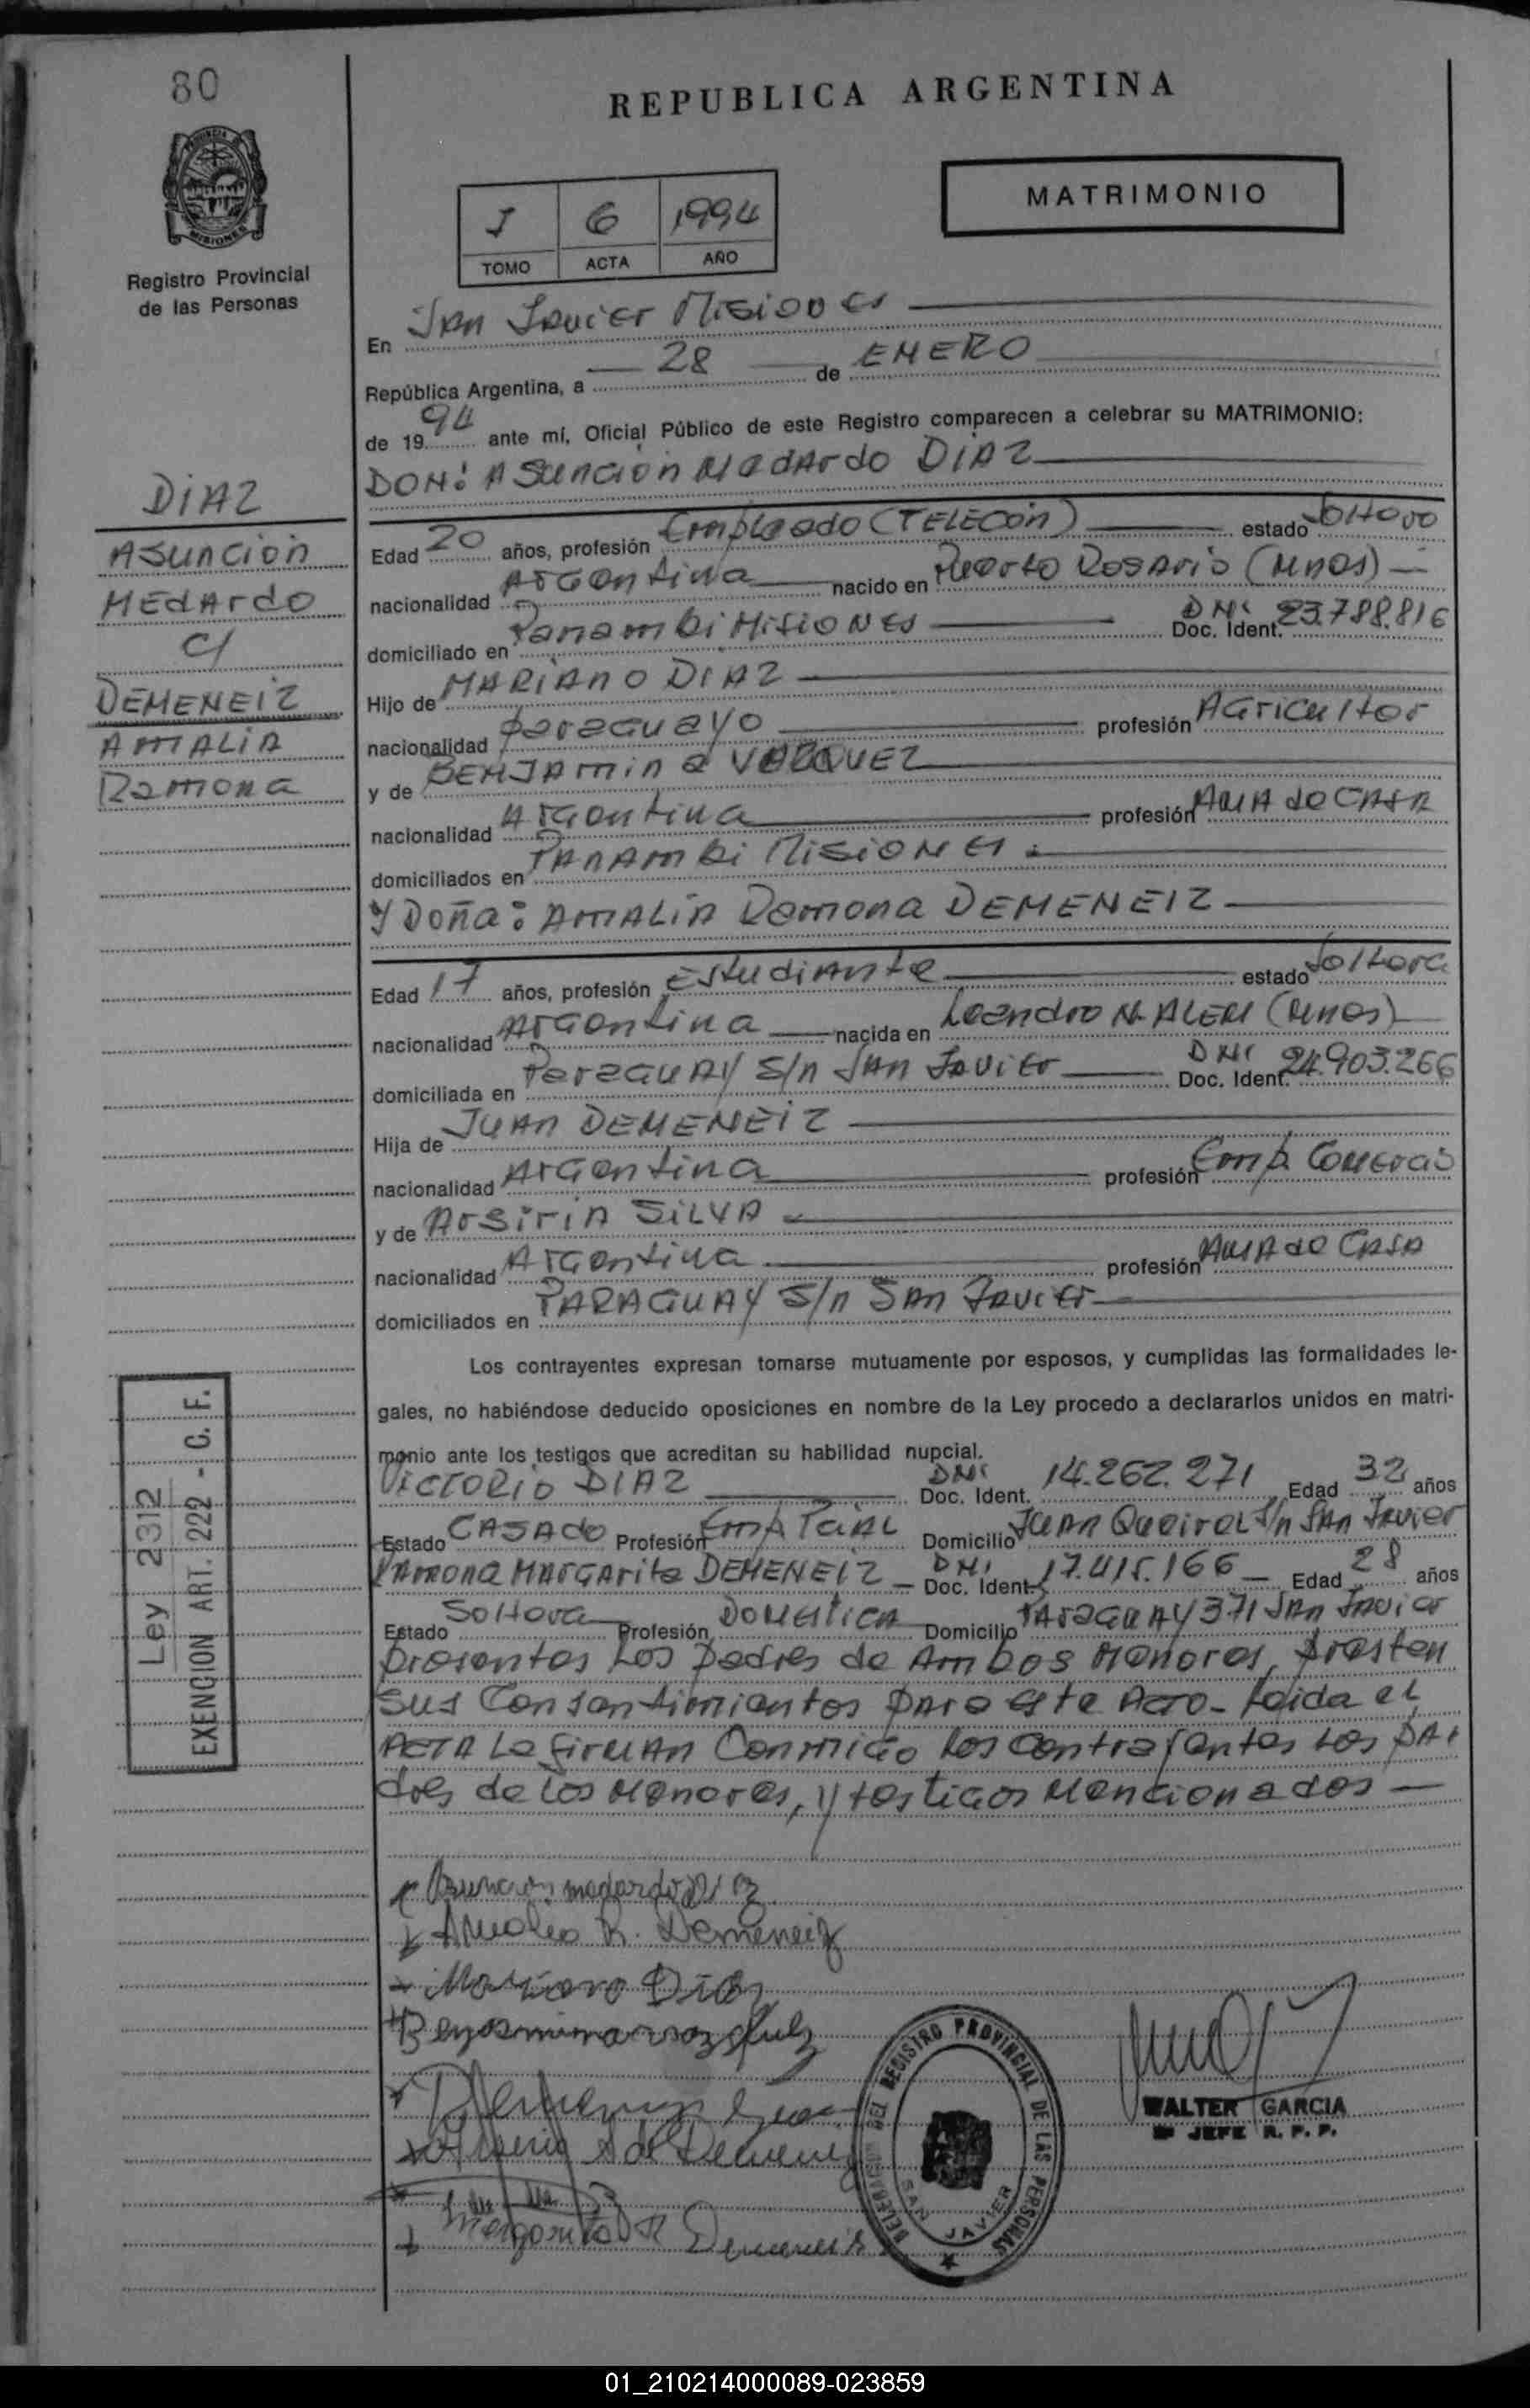 80
REPUBLICA ARGENTINA
PROVINCIA DE
MISIONES
Registro Provincial
de las Personas
MATRIMONIO
I 6 1994
TOMO ACTA AÑO
En San Javier Misiones
República Argentina, a 28 de ENERO
de 1994 ante mí, Oficial Público de este Registro comparecen a celebrar su MATRIMONIO:
DON: Asunción Medardo DIAZ
DIAZ
Asuncion
MEDArdo
c/
DEMENEIZ
AMALIA
Ramona
Edad 20 años, profesión Empleado (TELECOn) estado Soltero
nacionalidad Argentina nacido en Puerto Rosario (Mnes)
domiciliado en Panambi Misiones DNI Doc. Ident. 23.788.816
Hijo de MARIANO DIAZ
nacionalidad paraguayo profesión Agricultor
y de BENJAmina VAZQUEZ
nacionalidad Argentina profesión AMA de CASA
domiciliados en PANAmbi Misiones.
y Doña: AMALIA Ramona DEMENEIZ
Edad 17 años, profesión Estudiante estado Soltera
nacionalidad Argentina nacida en Leandro N. ALEM (Mnes)
domiciliada en Paraguay s/n San Javier DNI Doc. Ident. 24.903.266
Hija de JUAN DEMENEIZ
nacionalidad Argentina profesión Emp. Comercio
y de Arsiria SILVA
nacionalidad Argentina profesión AMA de CASA
domiciliados en PARAGUAY s/n San Javier
Los contrayentes expresan tomarse mutuamente por esposos, y cumplidas las formalidades le-
gales, no habiéndose deducido oposiciones en nombre de la Ley procedo a declararlos unidos en matri-
monio ante los testigos que acreditan su habilidad nupcial.
VICTORIO DIAZ DNI Doc. Ident. 14.262.271 Edad 32 años
Estado CASAdo Profesión Emp. Domicilio Juan Queirel s/n San Javier
Ramona Margarita DEMENEIZ DNI Doc. Ident. 17.415.166 Edad 28 años
Estado Soltera Profesión Domestica Domicilio Paraguay 371 San Javier
presentes los padres de Ambos Menores, presten
sus Consentimientos para este Acto- leida el
ACTA la firman Conmigo los contrayentes los pa-
dres de los Menores, y testigos Mencionados
Ley 2312
EXENCION ART. 222 - C. F.
Asuncion medardo Diaz
Amalia R. Demeneiz
Mariano Diaz
Benjamina
Demeneiz
Demeneiz
Margarita R Demeneiz
DELEGACION DEL REGISTRO PROVINCIAL DE LAS PERSONAS
SAN JAVIER
WALTER GARCIA
JEFE R. P. P.
01_210214000089-023859